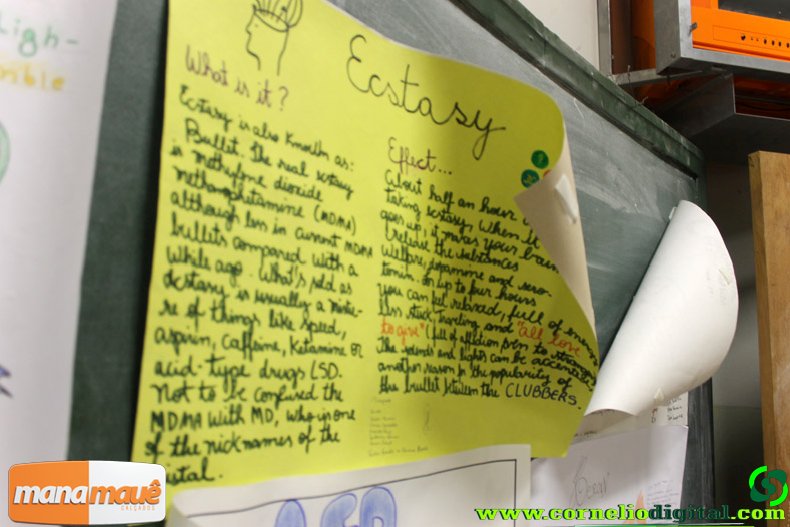 Ligh-
ible
Ecstasy
What is it?
Ecstasy is also known as:
Bullet. The real ecstasy
is methylene dioxide
methamphetamine (MDMA)
although less in current MDMA
bullets compared with a
while ago. What's sold as
ecstasy is usually a mixtu-
re of things like speed,
aspirin, caffeine, Ketamine or
acid-type drugs LSD.
Not to be confused the
MDMA with MD, who is one
of the nicknames of the
istal.
Effect...
About half an hour
taking ecstasy. When it
goes up, it makes your brain
release the substances
welfare, dopamine and sero-
tonin. on up to four hours
you can feel relaxed, full of energy
and "all love
to give" (full of affection
the sounds and lights can be accentua
another reason for the popularity of
the bullet between the CLUBBERS.
LSD
manamauê
CALÇADOS
www.corneliodigital.com